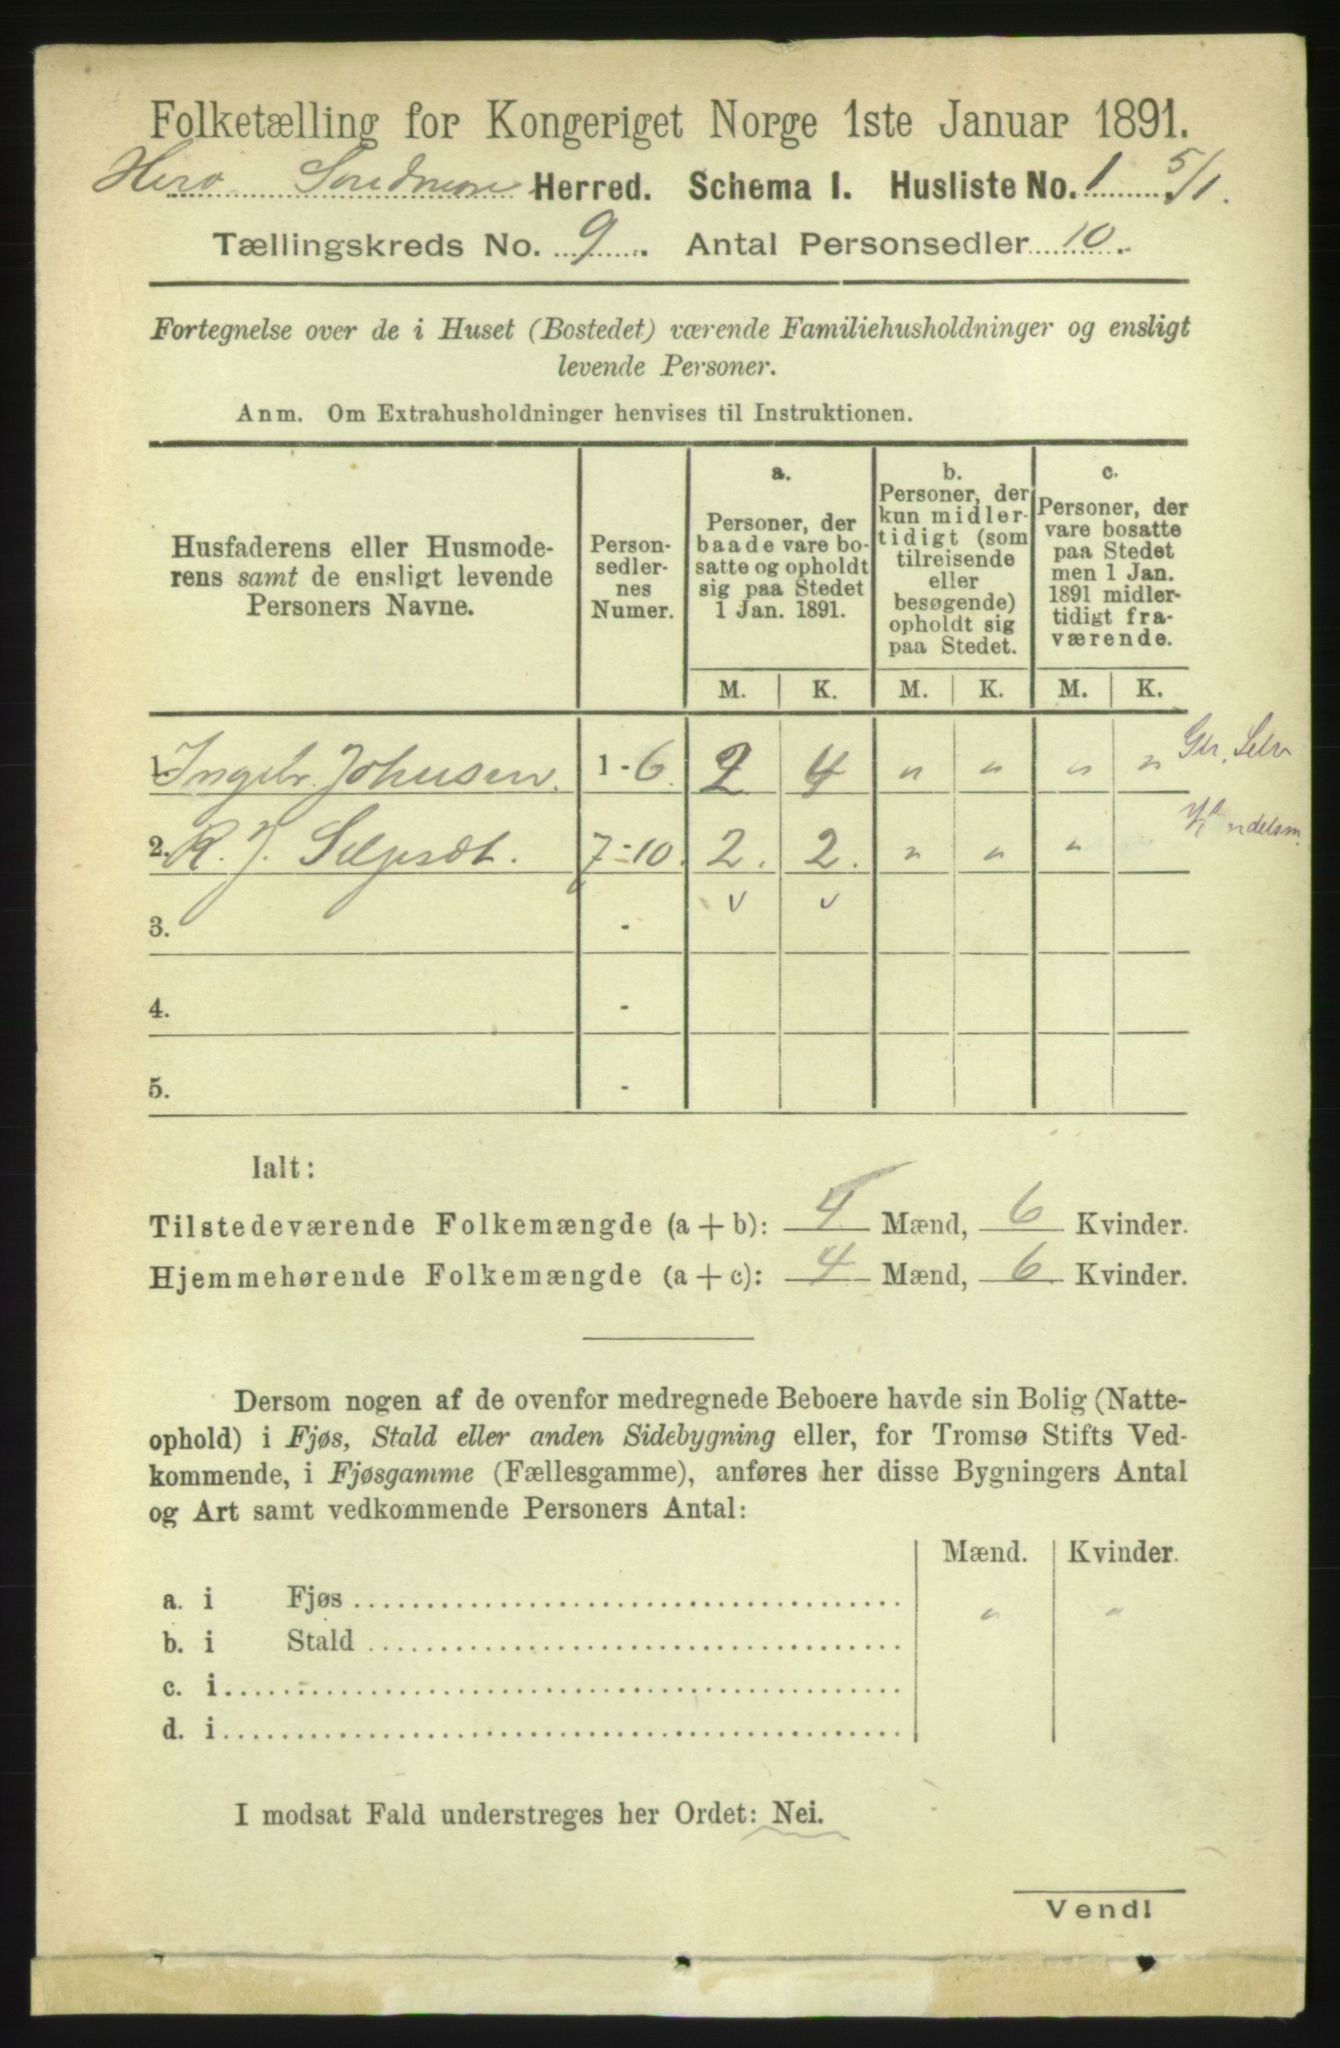 Folketælling for Kongeriget Norge 1ste Januar 1891.
Herø Søndmøre Herred. Schema I. Husliste No. 1 5/1.
Tællingskreds No. 9. Antal Personsedler 10.
Fortegnelse over de i Huset (Bostedet) værende Familiehusholdninger og ensligt
levende Personer.
Anm. Om Extrahusholdninger henvises til Instruktionen.
Husfaderens eller Husmode-
rens samt de ensligt levende
Personers Navne.
Person-
sedler-
nes
Numer.
a.
Personer, der
baade vare bo-
satte og opholdt
sig paa Stedet
1 Jan. 1891.
b.
Personer, der
kun midler-
tidigt (som
tilreisende
eller
besøgende)
opholdt sig
paa Stedet.
c.
Personer, der
vare bosatte
paa Stedet
men 1 Jan.
1891 midler-
tidigt fra-
værende.
M. K. M. K. M. K.
1. Ingebr. Johnsen. 1-6. 2 4 " " " "
2. R. J. 7-10. 2. 2. " " "
v v
3. -
4. -
5. -
Ialt:
Tilstedeværende Folkemængde (a + b): 4 Mænd, 6 Kvinder.
Hjemmehørende Folkemængde (a + c): 4 Mænd, 6 Kvinder.
Dersom nogen af de ovenfor medregnede Beboere havde sin Bolig (Natte-
ophold) i Fjøs, Stald eller anden Sidebygning eller, for Tromsø Stifts Ved-
kommende, i Fjøsgamme (Fællesgamme), anføres her disse Bygningers Antal
og Art samt vedkommende Personers Antal:
Mænd. Kvinder.
a. i Fjøs " "
b. i Stald
c. i
d. i
I modsat Fald understreges her Ordet: Nei.
Vend!